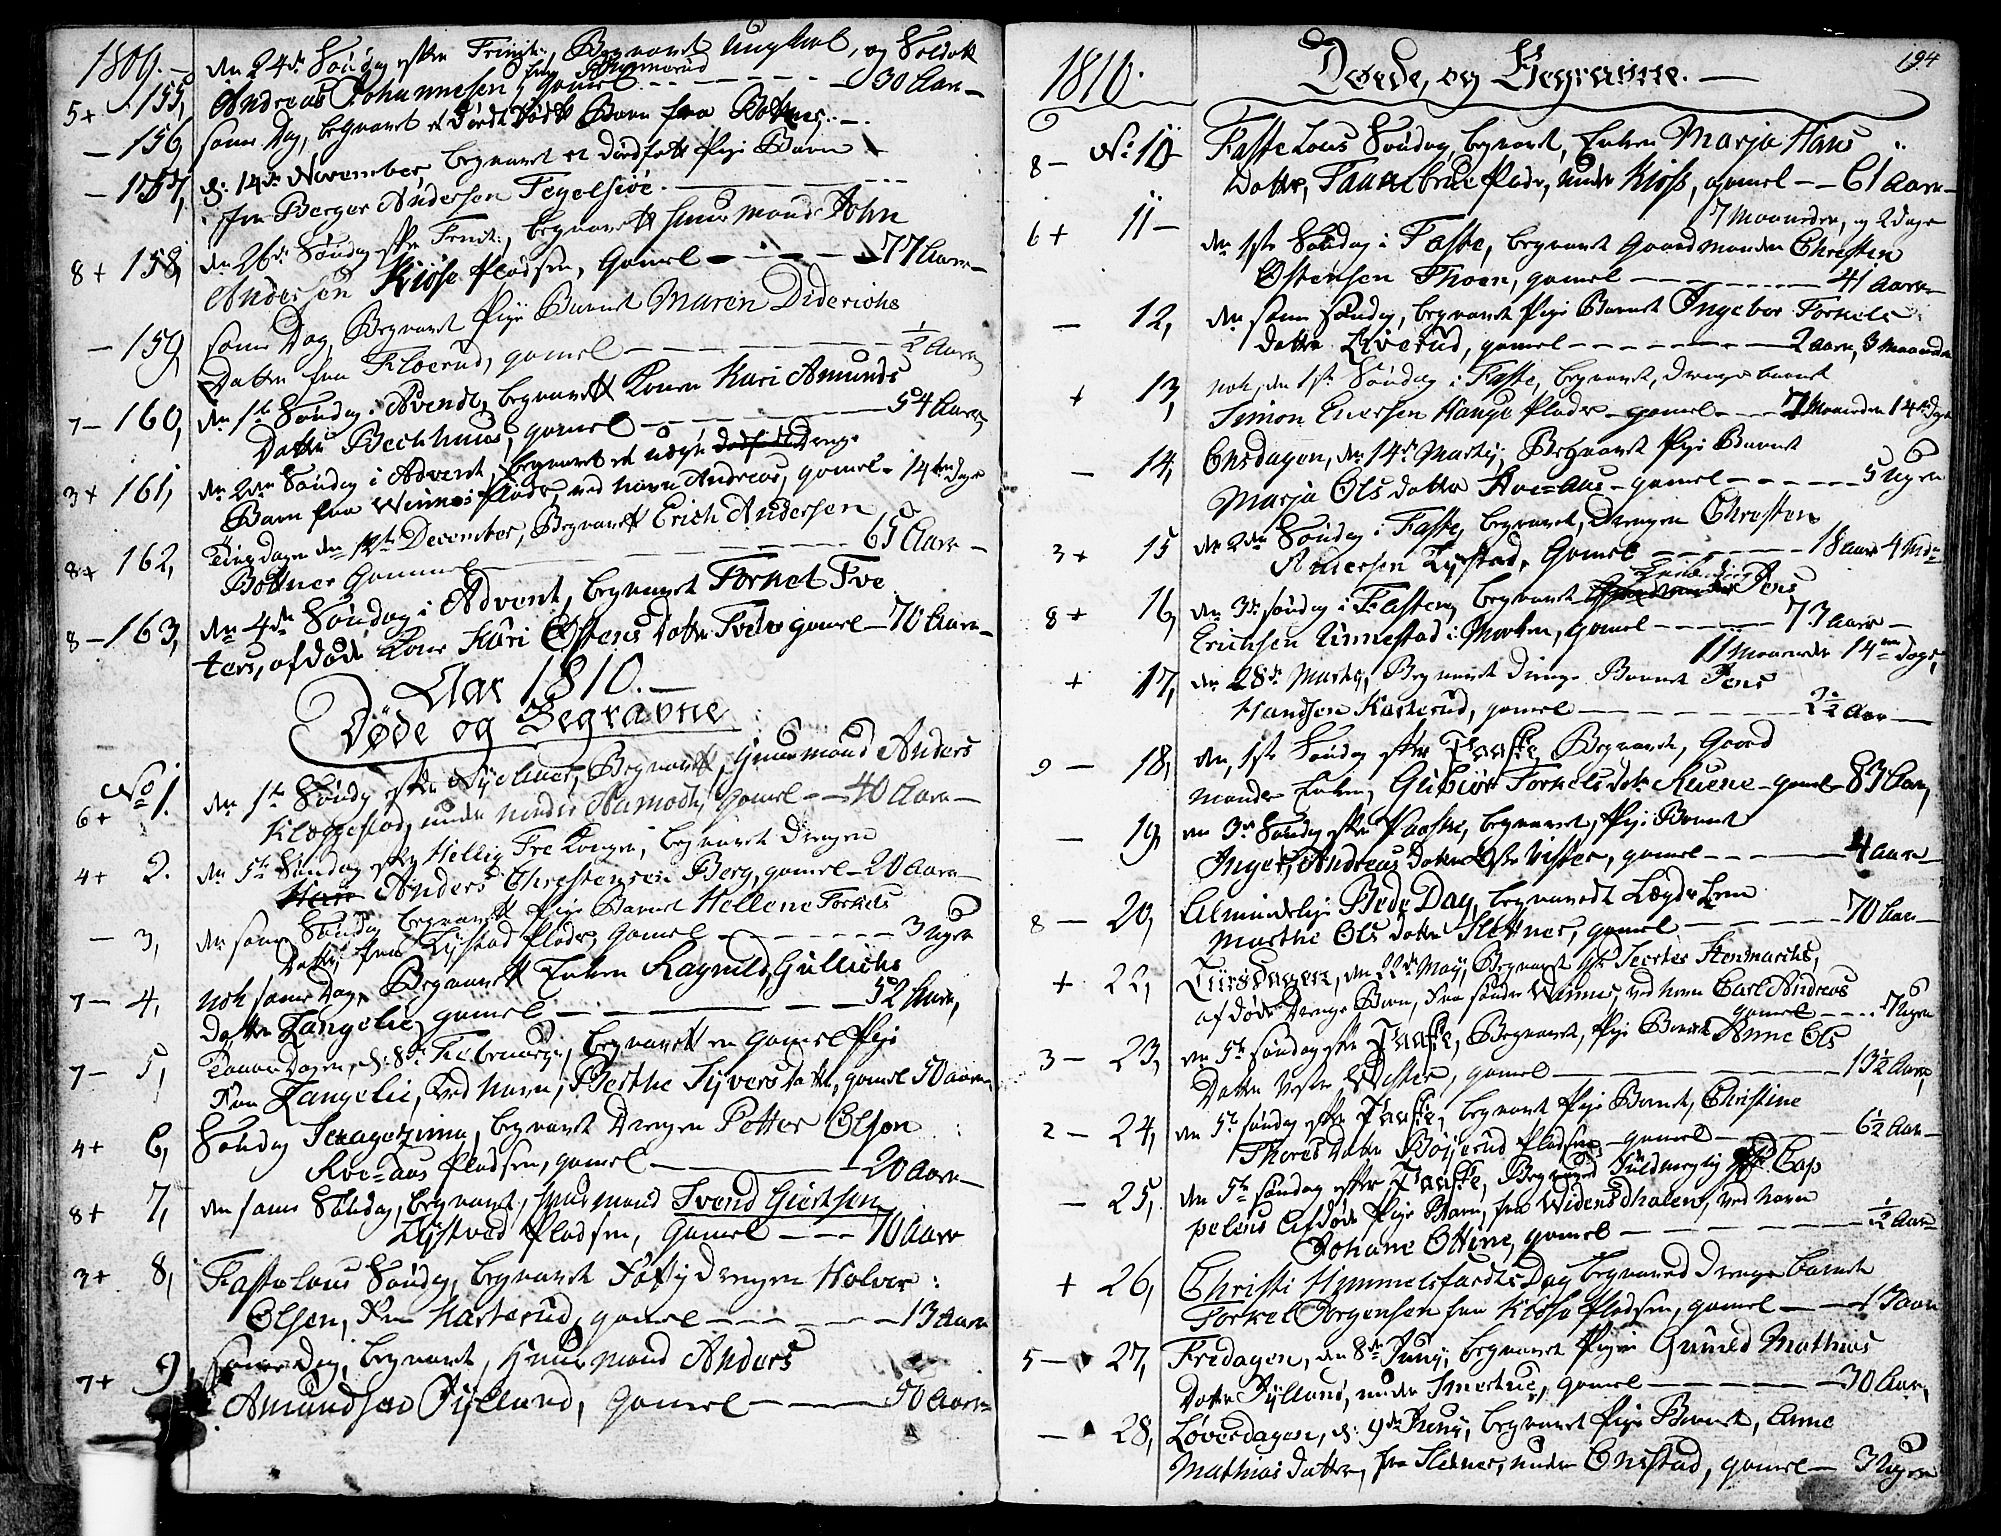 1809.
den 24de Søndag efter Trinit:, Begravet Ungkal, og Soldat
5+ 155, Andreas Johannesen, gamel - 30 Aar
- 156, same Dag, begravet et dødfødt Barn fra Bottner.
- 157, d: 14de November, begravet et dødfødt Pige Barn
fra Berger Andersen Tegelsiøe.
den 26de Søndag efter Trinit:, begravet Huusmand John
8+ 158, Andersen Kiøse Pladsen, Gamel - 77 Aar
same Dag Begravet Pige Barnet Maren Diderichs
- 159, Datter fra Floerud, gamel - ½ Aar
den 1te Søndag i Advent, begravet Konen Kari Amunds
7- 160, Datter Bechhuus, gamel - 54 Aar
den 2den Søndag i Advent, begravet et uægte Drenge
3+ 161, Barn fra Winnes Plads, ved navn Andreas, gamel - 14ten Dage
8+ 162, Tirsdagen den 12te December, Begravet Erich Andersen
Bottner Gammel - 65 Aar
den 4de Søndag i Advent, begravet Torkel Tve
8- 163, ters, afdøde Kone Kari Østens Datter Tveter gamel - 70 Aar
Aar 1810.
Døde og Begravne
No 1. den 1te Søndag efter Nyeaar, Begravet, Huusmand Anders
6+ Kloppestad, under nordre Aamodt, Gamel - 40 Aar
den 5te Søndag efter Hellig Tre Konger, begravet Drengen
4+ 2. Anders Christensen Berg, gamel - 20 Aar
- 3, den same Søndag begravet Pige Barnet Hellene Torkels
Datter, fra Lystad Plads, Gamel - 3 Uger
7- 4, nok same Dag, Begravet Enken Ragnild Gullichs
Datter Langelie, gamel - 52 Aar,
7- 5, Taarsdagen, d: 8de Februarij, begravet en Gamel Pige
Fra Langelie, ved Navn, Berthe Syvers Datter, gamel 50 aar
4+ 6, Søndag Sexagesima, begravet Drengen Petter Olsen
Aas Pladsen, gamel - 20 Aar
8+ 7, den same Søndag, begravet, Huusmand Svend Giertsen
Pladsen, Gamel - 70 Aar
3+ 8, Fastelaus Søndag, begravet Drengen Halvor:
Olsen, Fra Kasterud, gamel - 13 Aar
7+ 9, same Dag, begravet, Huusmand Anders
Amundsen Jylland, Gamel - 50 Aar
1810. Døde, og Begravne. 194
8- No 10 Faste Laus Søndag, begravet, Enken Marja Hans
Datter, Taarnebrue Plads, under Kiøss, gamel - 61 Aar
7 Maaneder, og 2 dage
6+ 11- den 1ste Søndag i Faste, begravet Gaardmanden Christen
Østensen Thoen, gamel - 41 Aar
- 12, den same Søndag, begravet Pige Barnet Ingebor Torkels
datter Liverud, gamel - 2 aar, 3 Maaneder
+ 13, nok, den 1ste Søndag i Faste, begravet, drenge barnet
Simon Eversen Hauge Plads - gamel - 7 Maaneder 14 dage
- 14, Onsdagen, den 14de Martij, Begravet Pige Barnet
Marja Ols datter Aas - gamel - 5 Uger
3+ 15 den 2den Søndag i Faste, begravet, Drengen Christen
Andersen Lystad, Gamel - 18 aar
8+ 16, den 3de søndag i Fasten, begravet Jens
Erichsen Linnestad i Marken, gamel - 73 aar
11 Maaneder 14en dage,
+ 17, den 28de Martij, Begravet Drenge Barnet Jens
Hansen Kasterud, gamel - 2½ Aar
9- 18, den, 1ste Søndag efter Paaske Begravet, Gaard
mands Enken, Gubiør Torkels datter Ruene - gamel - 83 Aar,
- 19, den 3de Søndag efter Paaske, begravet, Pige Barnet
Inger, Andreas Datter Østre Wister, gamel - 4 Aar
8- 20, Almindelige Bede Dag, begravedt Lægds Lem
Marthe Ols datter Slettner, gamel - 70 Aar
+ 22, Tirsdagen, den 22de May, Begravet
afdøde Drenge Barn, Fra søndre Winnes, ved navn Carl Andreas
gamel - 7 Uger
3- 23, den 5te søndag efter Paaske, Begravet, Pige Barnet Anne Ols
Datter Vestre Wister, gamel - 13½ Aar,
2- 24, den 5te søndag efter Paaske, begravet Pige Barnet, Christine
Thores Datter Bøyerud Pladsen - gamel - 6½ Aar
- 25, den 5te søndag efter Paaske, Begravet Cap
pelens Afdøde Pige Barn, fra Widensdhalen, ved Navn
Johane Ottine, gamel - ½ Aar
+ 26, Christi Himmelfardts Dag begravet Drenge barnet
Torkel Jørgensen fra Kiøse Pladsen, gamel - 1 Aar
5- 27, Fredagen, den 8de Junij, begravet Pigen Gunild Mathias
Datter Jylland, under Smertue, gamel - 30 Aar,
- 28, Løverdagen, d: 9de Junij, begravet Pige Barnet, Anne
Mathias datter, fra Sletner, under Onstad, gamel - 3 Uger